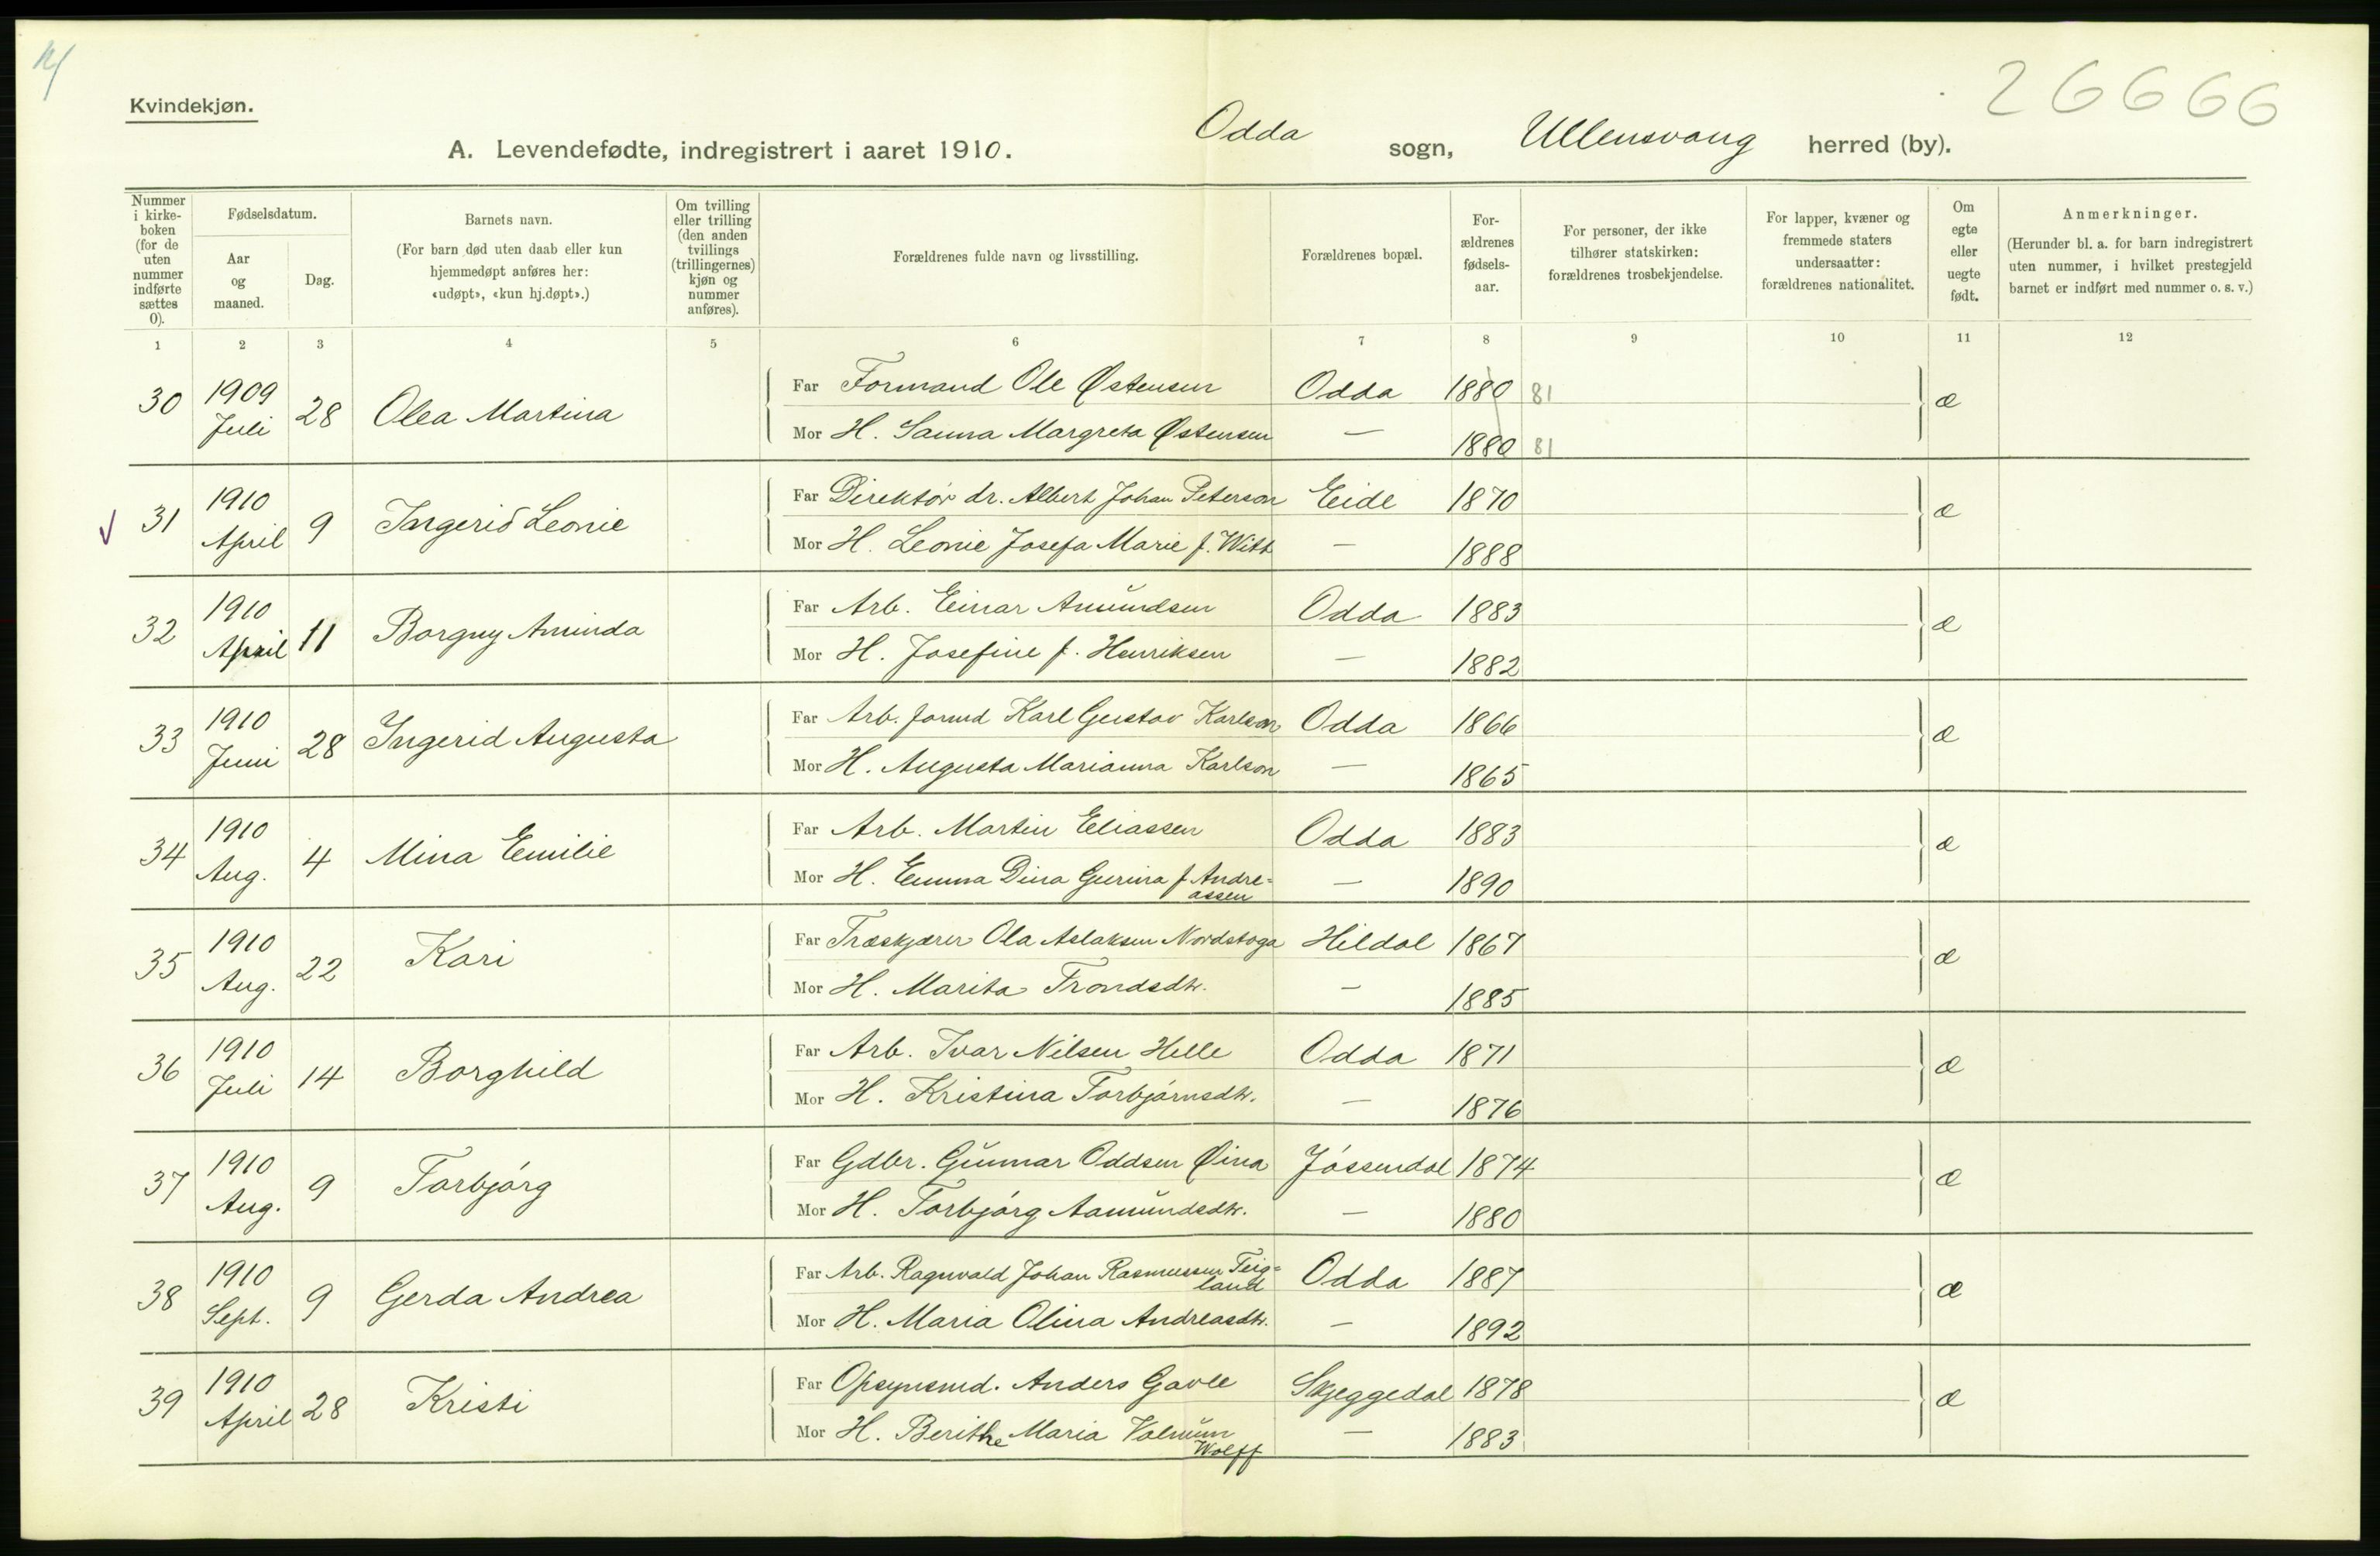 26666
Kvindekjøn.
A. Levendefødte, indregistrert i aaret 1910. Odda sogn, Ullensvang herred (by).
Nummer i kirke-boken (for de uten nummer indførte sættes 0).
Fødselsdatum.
Aar og maaned.
Dag.
Barnets navn.
(For barn død uten daab eller kun hjemmedøpt anføres her: «udøpt», «kun hj.døpt».)
Om tvilling eller trilling (den anden tvillings (trillingernes) kjøn og nummer anføres).
Forældrenes fulde navn og livsstilling.
Forældrenes bopæl.
For-ældrenes fødsels-aar.
For personer, der ikke tilhører statskirken: forældrenes trosbekjendelse.
For lapper, kvæner og fremmede staters undersaatter: forældrenes nationalitet.
Om egte eller uegte født.
Anmerkninger.
(Herunder bl. a. for barn indregistrert uten nummer, i hvilket prestegjeld barnet er indført med nummer o. s. v.)
1 2 3 4 5 6 7 8 9 10 11 12
30 1909 Juli 28 Olea Martina
Far Formand Ole Østensen Odda 1880 81 æ
Mor H. Sanna Margreta Østensen — 1880 81
31 1910 April 9 Ingerid Leonie
Far Direktør dr. Albert Johan Peterson Eide 1870 æ
Mor H. Leonie Josefa Marie f. Witt — 1888
32 1910 April 11 Borgny Aminda
Far Arb. Einar Amundsen Odda 1883 æ
Mor H. Josefine f. Henriksen — 1882
33 1910 Juni 28 Ingerid Augusta
Far Arb. formd Karl Gustav Karlson Odda 1866 æ
Mor H. Augusta Marianna Karlson — 1865
34 1910 Aug. 4 Mina Emilie
Far Arb. Martin Eliassen Odda 1883 æ
Mor H. Emma Dina Gurina f. Andre=
assen — 1890
35 1910 Aug. 22 Kari
Far Træskjærer Ola Aslaksen Nordstoga Hildal 1867 æ
Mor H. Marita Trondsdtr. — 1885
36 1910 Juli 14 Borghild
Far Arb. Ivar Nilsen Helle Odda 1871 æ
Mor H. Kristina Torbjørnsdtr. — 1876
37 1910 Aug. 9 Torbjørg
Far Gdbr. Gunnar Oddsen Øina Jøssendal 1874 æ
Mor H. Torbjørg Aamundsdtr. — 1880
38 1910 Sept. 9 Gerda Andrea
Far Arb. Ragnvald Johan Rasmussen Teig=
land Odda 1887 æ
Mor H. Maria Olina Andreasdtr. — 1892
39 1910 April 28 Kristi
Far Opsynsmd. Anders Gavle Skjeggedal 1878 æ
Mor H. Berithe Maria Valmun
Wolff — 1883